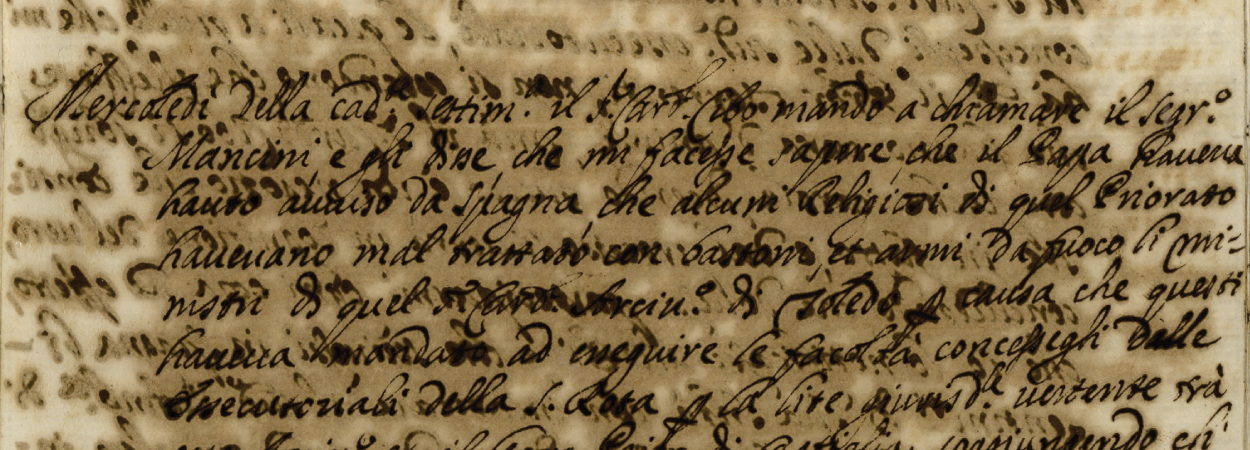 Mercoledi della cad.te settim.a il S.r Card. Cibo mandò a chiamare il segr.o
Mancini, e gli disse, che mi facesse sapere, che il Papa haveva
hauto auuiso da Spagna che alcuni Religiosi di quel Priorato
haueuano mal trattato con bastoni, et armi da fuoco li Mi-
nistri di quel S.r Card. Arciu.o di Toledo p causa che questi
haueua mandato ad eseguire le facoltà concessegli dalle
essecutoriali della S. Rota p la lite giurisd.le vertente trà
Prior di Castiglia, soggiungendo ch